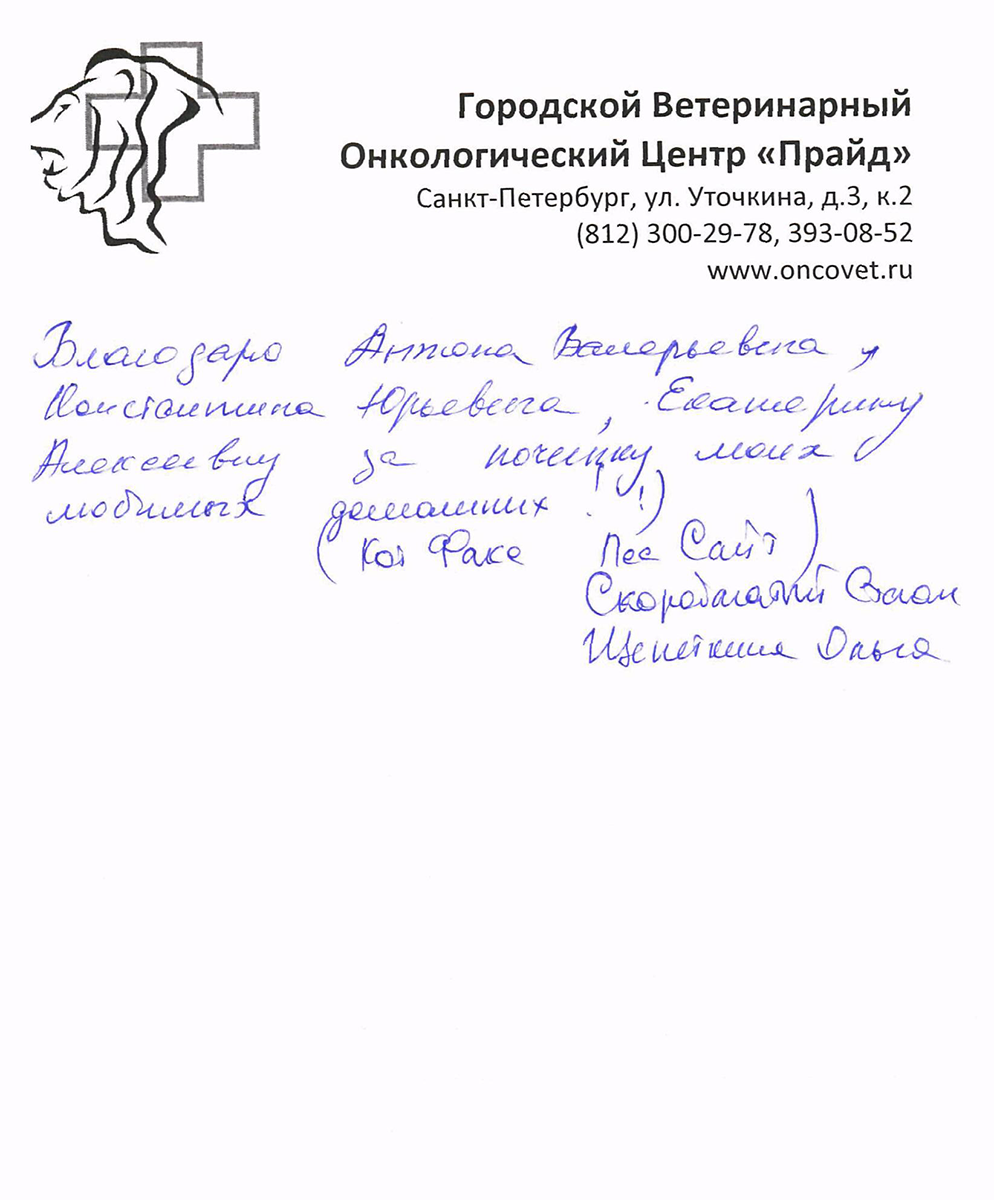 Городской Ветеринарный
Онкологический Центр «Прайд»
Санкт-Петербург, ул. Уточкина, д.3, к.2
(812) 300-29-78, 393-08-52
www.oncovet.ru
Благодарю Антона Валерьевича,
Константина Юрьевича, Екатерину
Алексеевну за починку моих
любимых домашних !!)
(Кот Факс Пес Сайт)
Ольга